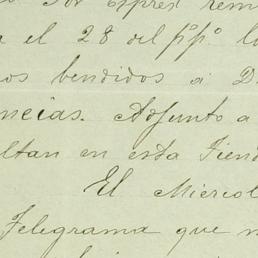 Por Expres rem
a el 28 del pº pº lo
os bendidos a D.
ncias. Adjunto a
ltan en esta Tiend
El Miercol
Telegrama que n